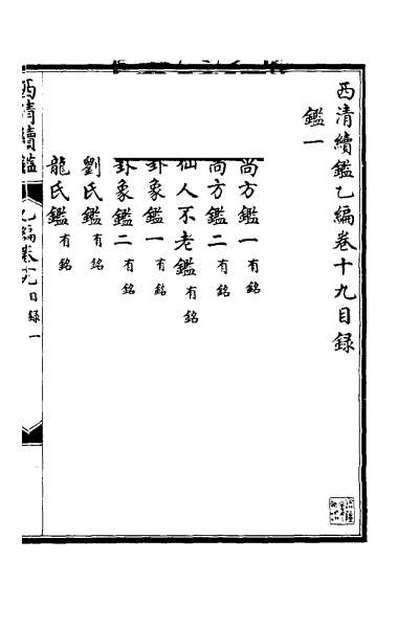 西清續鑑乙編卷十九目錄
鑑一
尚方鑑一有銘
尚方鑑二有銘
仙人不老鑑有銘
卦象鑑一有銘
卦象鑑二有銘
劉氏鑑有銘
龍氏鑑有銘
西清續鑑 乙編卷十九目錄 一